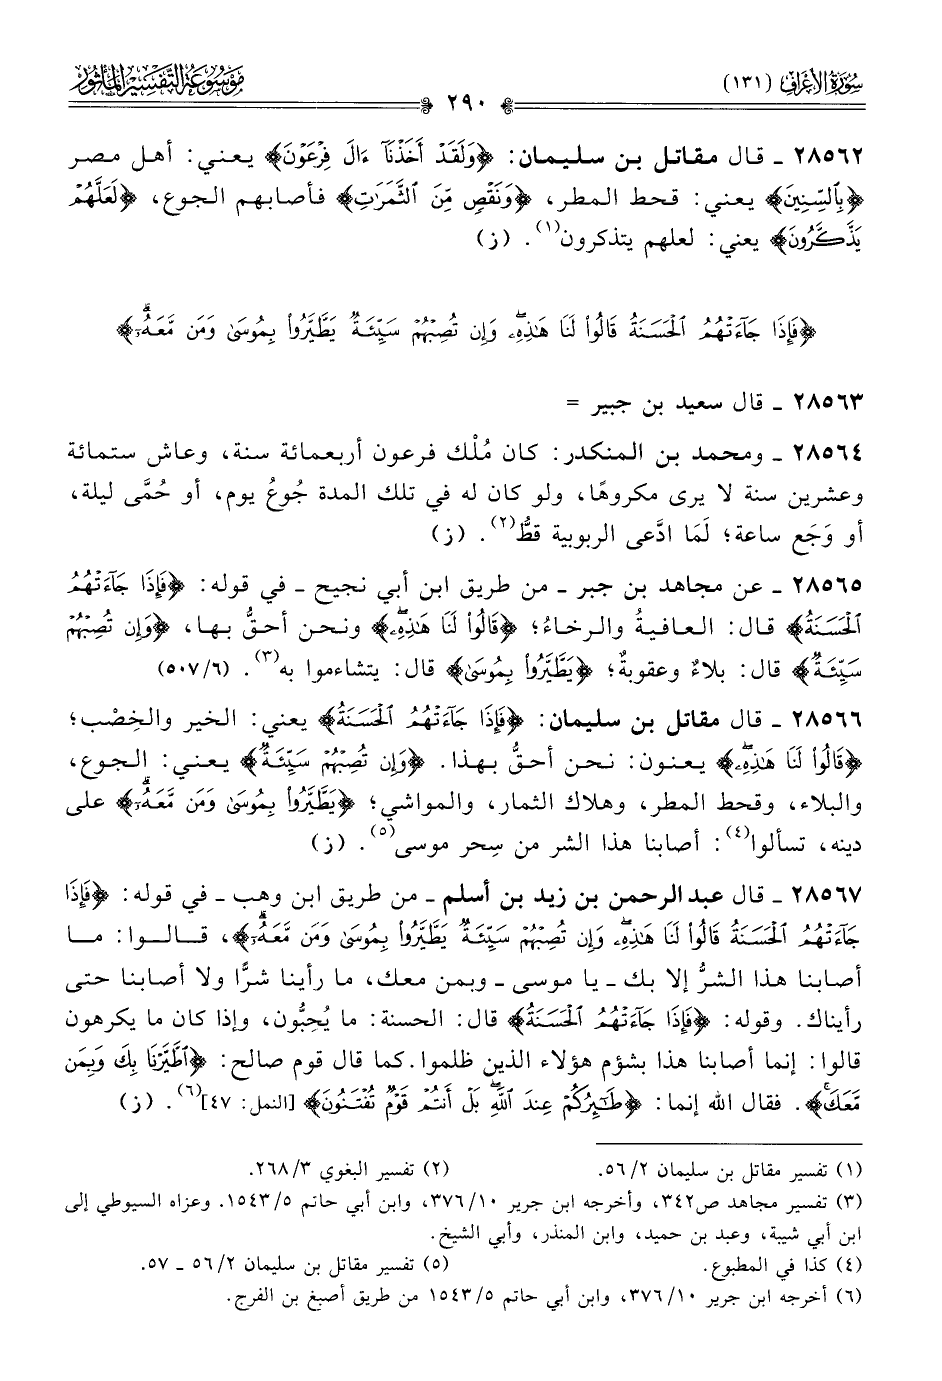 سورة الأعراف (١٣١)
موسوعة التفسير المأثور
٢٩٠
٢٨٥٦٢ ـ قال مقاتل بن سليمان: ﴿وَلَقَدْ أَخَذْنَآ ءَالَ فِرْعَوْنَ﴾ يعني: أهل مصر
﴿بِٱلسِّنِينَ﴾ يعني: قحط المطر، ﴿وَنَقْصٍ مِّنَ ٱلثَّمَرَٰتِ﴾ فأصابهم الجوع، ﴿لَعَلَّهُمْ
يَذَّكَّرُونَ﴾ يعني: لعلهم يتذكرون(١). (ز)
﴿فَإِذَا جَآءَتْهُمُ ٱلْحَسَنَةُ قَالُوا۟ لَنَا هَٰذِهِۦ ۖ وَإِن تُصِبْهُمْ سَيِّئَةٌ يَطَّيَّرُوا۟ بِمُوسَىٰ وَمَن مَّعَهُۥٓ ۗ﴾
٢٨٥٦٣ ـ قال سعيد بن جبير =
٢٨٥٦٤ ـ ومحمد بن المنكدر: كان مُلْك فرعون أربعمائة سنة، وعاش ستمائة
وعشرين سنة لا يرى مكروهًا، ولو كان له في تلك المدة جُوعُ يوم، أو حُمَّى ليلة،
أو وَجَع ساعة؛ لَمَا ادَّعى الربوبية قطُّ(٢). (ز)
٢٨٥٦٥ ـ عن مجاهد بن جبر ـ من طريق ابن أبي نجيح ـ في قوله: ﴿فَإِذَا جَآءَتْهُمُ
ٱلْحَسَنَةُ﴾ قال: العافيةُ والرخاءُ؛ ﴿قَالُوا۟ لَنَا هَٰذِهِۦ ۖ﴾ ونحن أحقُّ بها، ﴿وَإِن تُصِبْهُمْ
سَيِّئَةٌ﴾ قال: بلاءٌ وعقوبةٌ؛ ﴿يَطَّيَّرُوا۟ بِمُوسَىٰ﴾ قال: يتشاءموا به(٣). (٥٠٧/٦)
٢٨٥٦٦ ـ قال مقاتل بن سليمان: ﴿فَإِذَا جَآءَتْهُمُ ٱلْحَسَنَةُ﴾ يعني: الخير والخِصْب؛
﴿قَالُوا۟ لَنَا هَٰذِهِۦ ۖ﴾ يعنون: نحن أحقُّ بهذا. ﴿وَإِن تُصِبْهُمْ سَيِّئَةٌ﴾ يعني: الجوع،
والبلاء، وقحط المطر، وهلاك الثمار، والمواشي؛ ﴿يَطَّيَّرُوا۟ بِمُوسَىٰ وَمَن مَّعَهُۥٓ ۗ﴾ على
دينه، تسألوا(٤): أصابنا هذا الشر من سِحر موسى(٥). (ز)
٢٨٥٦٧ ـ قال عبد الرحمن بن زيد بن أسلم ـ من طريق ابن وهب ـ في قوله: ﴿فَإِذَا
جَآءَتْهُمُ ٱلْحَسَنَةُ قَالُوا۟ لَنَا هَٰذِهِۦ ۖ وَإِن تُصِبْهُمْ سَيِّئَةٌ يَطَّيَّرُوا۟ بِمُوسَىٰ وَمَن مَّعَهُۥٓ ۗ﴾، قالوا: ما
أصابنا هذا الشرُّ إلا بك ـ يا موسى ـ وبمن معك، ما رأينا شرًّا ولا أصابنا حتى
رأيناك. وقوله: ﴿فَإِذَا جَآءَتْهُمُ ٱلْحَسَنَةُ﴾ قال: الحسنة: ما يُحِبُّون، وإذا كان ما يكرهون
قالوا: إنما أصابنا هذا بشؤم هؤلاء الذين ظلموا. كما قال قوم صالح: ﴿ٱطَّيَّرْنَا بِكَ وَبِمَن
مَّعَكَ ۚ﴾. فقال الله إنما: ﴿طَٰٓئِرُكُمْ عِندَ ٱللَّهِ ۖ بَلْ أَنتُمْ قَوْمٌ تُفْتَنُونَ﴾ [النمل: ٤٧](٦). (ز)
(١) تفسير مقاتل بن سليمان ٥٦/٢. (٢) تفسير البغوي ٢٦٨/٣.
(٣) تفسير مجاهد ص٣٤٢، وأخرجه ابن جرير ٣٧٦/١٠، وابن أبي حاتم ١٥٤٣/٥. وعزاه السيوطي إلى
ابن أبي شيبة، وعبد بن حميد، وابن المنذر، وأبي الشيخ.
(٤) كذا في المطبوع. (٥) تفسير مقاتل بن سليمان ٥٦/٢ ـ ٥٧.
(٦) أخرجه ابن جرير ٣٧٦/١٠، وابن أبي حاتم ١٥٤٣/٥ من طريق أصبغ بن الفرج.